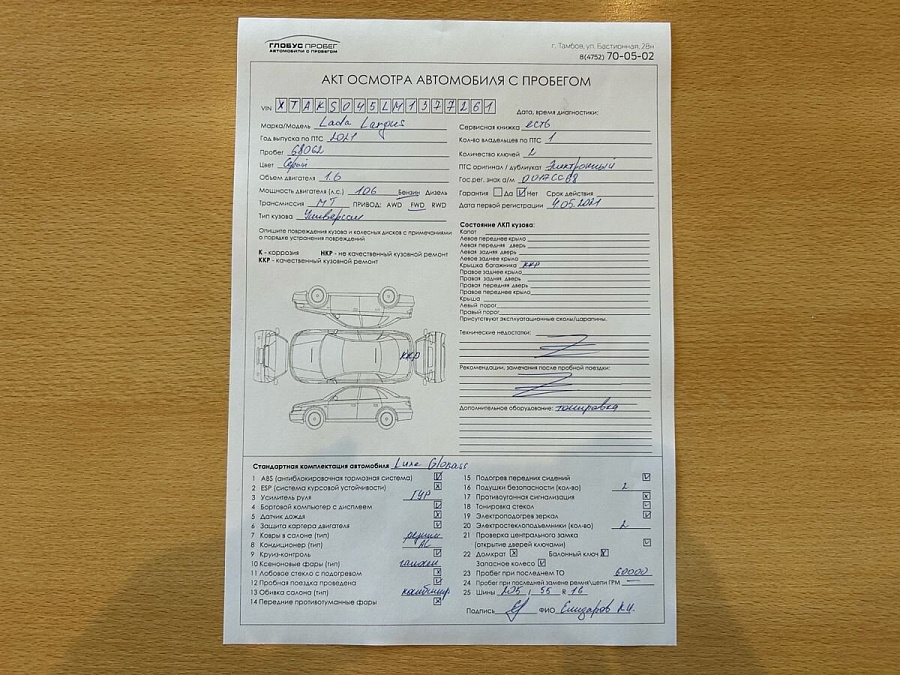 ГЛОБУС ПРОБЕГ
АВТОМОБИЛИ С ПРОБЕГОМ
г. Тамбов, ул. Бастионная, 28н
8(4752) 70-05-02
АКТ ОСМОТРА АВТОМОБИЛЯ С ПРОБЕГОМ
VIN XTAKS045LM1377261
Дата, время диагностики:
Марка/Модель Lada Largus
Год выпуска по ПТС 2021
Пробег 68062
Цвет Серый
Объем двигателя 1.6
Мощность двигателя (л.с.) 106 Бензин Дизель
Трансмиссия МТ ПРИВОД: AWD FWD RWD
Тип кузова Универсал
Опишите повреждения кузова и колесных дисков с примечаниями
о порядке устранения повреждений
К - коррозия НКР - не качественный кузовной ремонт
ККР - качественный кузовной ремонт
ККР
Сервисная книжка есть
Кол-во владельцев по ПТС 1
Количество ключей 2
ПТС оригинал / дубликат Электронный
Гос.рег. знак а/м
Гарантия Да Нет Срок действия
Дата первой регистрации 4.05.2021
Состояние ЛКП кузова:
Капот
Левое переднее крыло
Левая передняя дверь
Левая задняя дверь
Левое заднее крыло
Крышка багажника ККР
Правое заднее крыло
Правая задняя дверь
Правая передняя дверь
Правое переднее крыло
Крыша
Левый порог
Правый порог
Присутствуют эксплуатационные сколы/царапины.
Технические недостатки:
Рекомендации, замечания после пробной поездки:
Дополнительное оборудование: тонировка
Стандартная комплектация автомобиля Luxe Glonass
1 ABS (антиблокировочная тормозная система)
2 ESP (система курсовой устойчивости)
3 Усилитель руля ГУР
4 Бортовой компьютер с дисплеем
5 Датчик дождя
6 Защита картера двигателя
7 Ковры в салоне (тип)
8 Кондиционер (тип) AC
9 Круиз-контроль
10 Ксеноновые фары (тип) галоген
11 Лобовое стекло с подогревом
12 Пробная поездка проведена
13 Обивка салона (тип)
14 Передние противотуманные фары
15 Подогрев передних сидений
16 Подушки безопасности (кол-во) 2
17 Противоугонная сигнализация
18 Тонировка стекол
19 Электроподогрев зеркал
20 Электростеклоподъемники (кол-во) 2
21 Проверка центрального замка
(открытие дверей ключами)
22 Домкрат Балонный ключ
Запасное колесо
23 Пробег при последнем ТО 60000
24 Пробег при последней замене ремня\цепи ГРМ —
25 Шины 205 / 55 R 16
Подпись ФИО